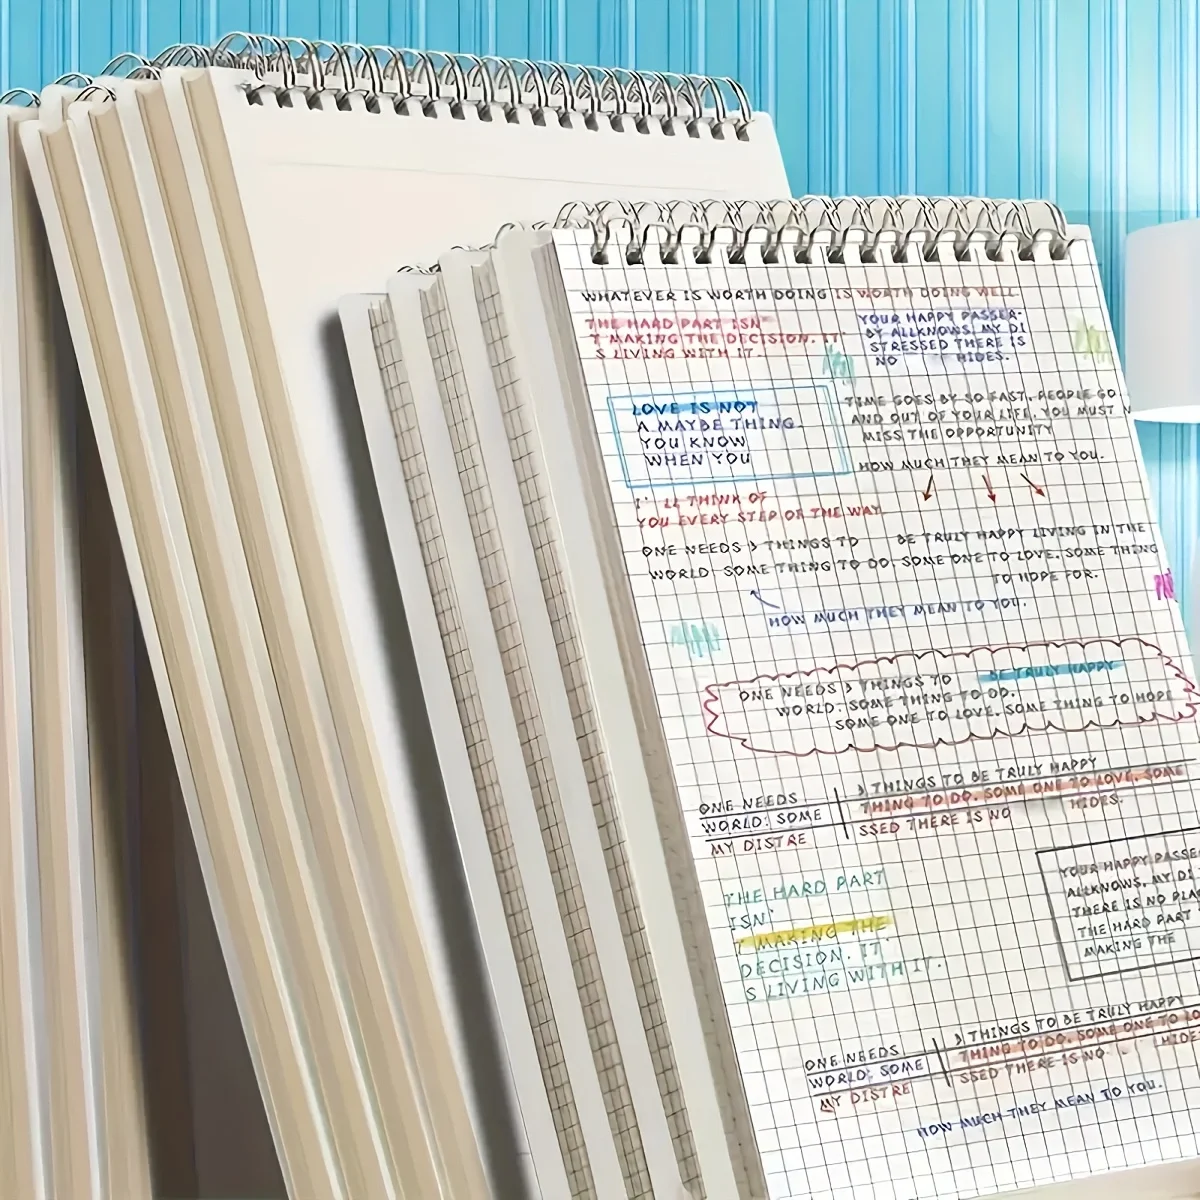 WHATEVER IS WORTH DOING IS WORTH DOING WELL.
THE HARD PART ISN'
T MAKING THE DECISION. IT
S LIVING WITH IT.
YOUR HAPPY PASSER-
BY ALLKNOWS, MY DI
STRESSED THERE IS
NO HIDES.
LOVE IS NOT
A MAYBE THING
YOU KNOW
WHEN YOU
TIME GOES BY SO FAST, PEOPLE GO
AND OUT OF YOUR LIFE. YOU MUST N
MISS THE OPPORTUNITY
HOW MUCH THEY MEAN TO YOU.
I' LL THINK OF
YOU EVERY STEP OF THE WAY.
ONE NEEDS 3 THINGS TO BE TRULY HAPPY LIVING IN THE
WORLD: SOME THING TO DO. SOME ONE TO LOVE. SOME THING
TO HOPE FOR.
HOW MUCH THEY MEAN TO YOU.
ONE NEEDS 3 THINGS TO BE TRULY HAPPY
WORLD: SOME THING TO DO.
SOME ONE TO LOVE. SOME THING TO HOPE
ONE NEEDS 3 THINGS TO BE TRULY HAPPY
WORLD: SOME THING TO DO. SOME ONE TO LOVE. SOME
MY DISTRE SSED THERE IS NO HIDES.
THE HARD PART
ISN'
T MAKING THE
DECISION. IT'
S LIVING WITH IT.
YOUR HAPPY PASSE
ALLKNOWS, MY DI
THERE IS NO PLA
THE HARD PART
MAKING THE
ONE NEEDS 3 THINGS TO BE TRULY HAPPY
WORLD: SOME THING TO DO. SOME ONE TO LO
MY DISTRE SSED THERE IS NO HIDE
HOW MUCH THEY MEAN TO YOU.